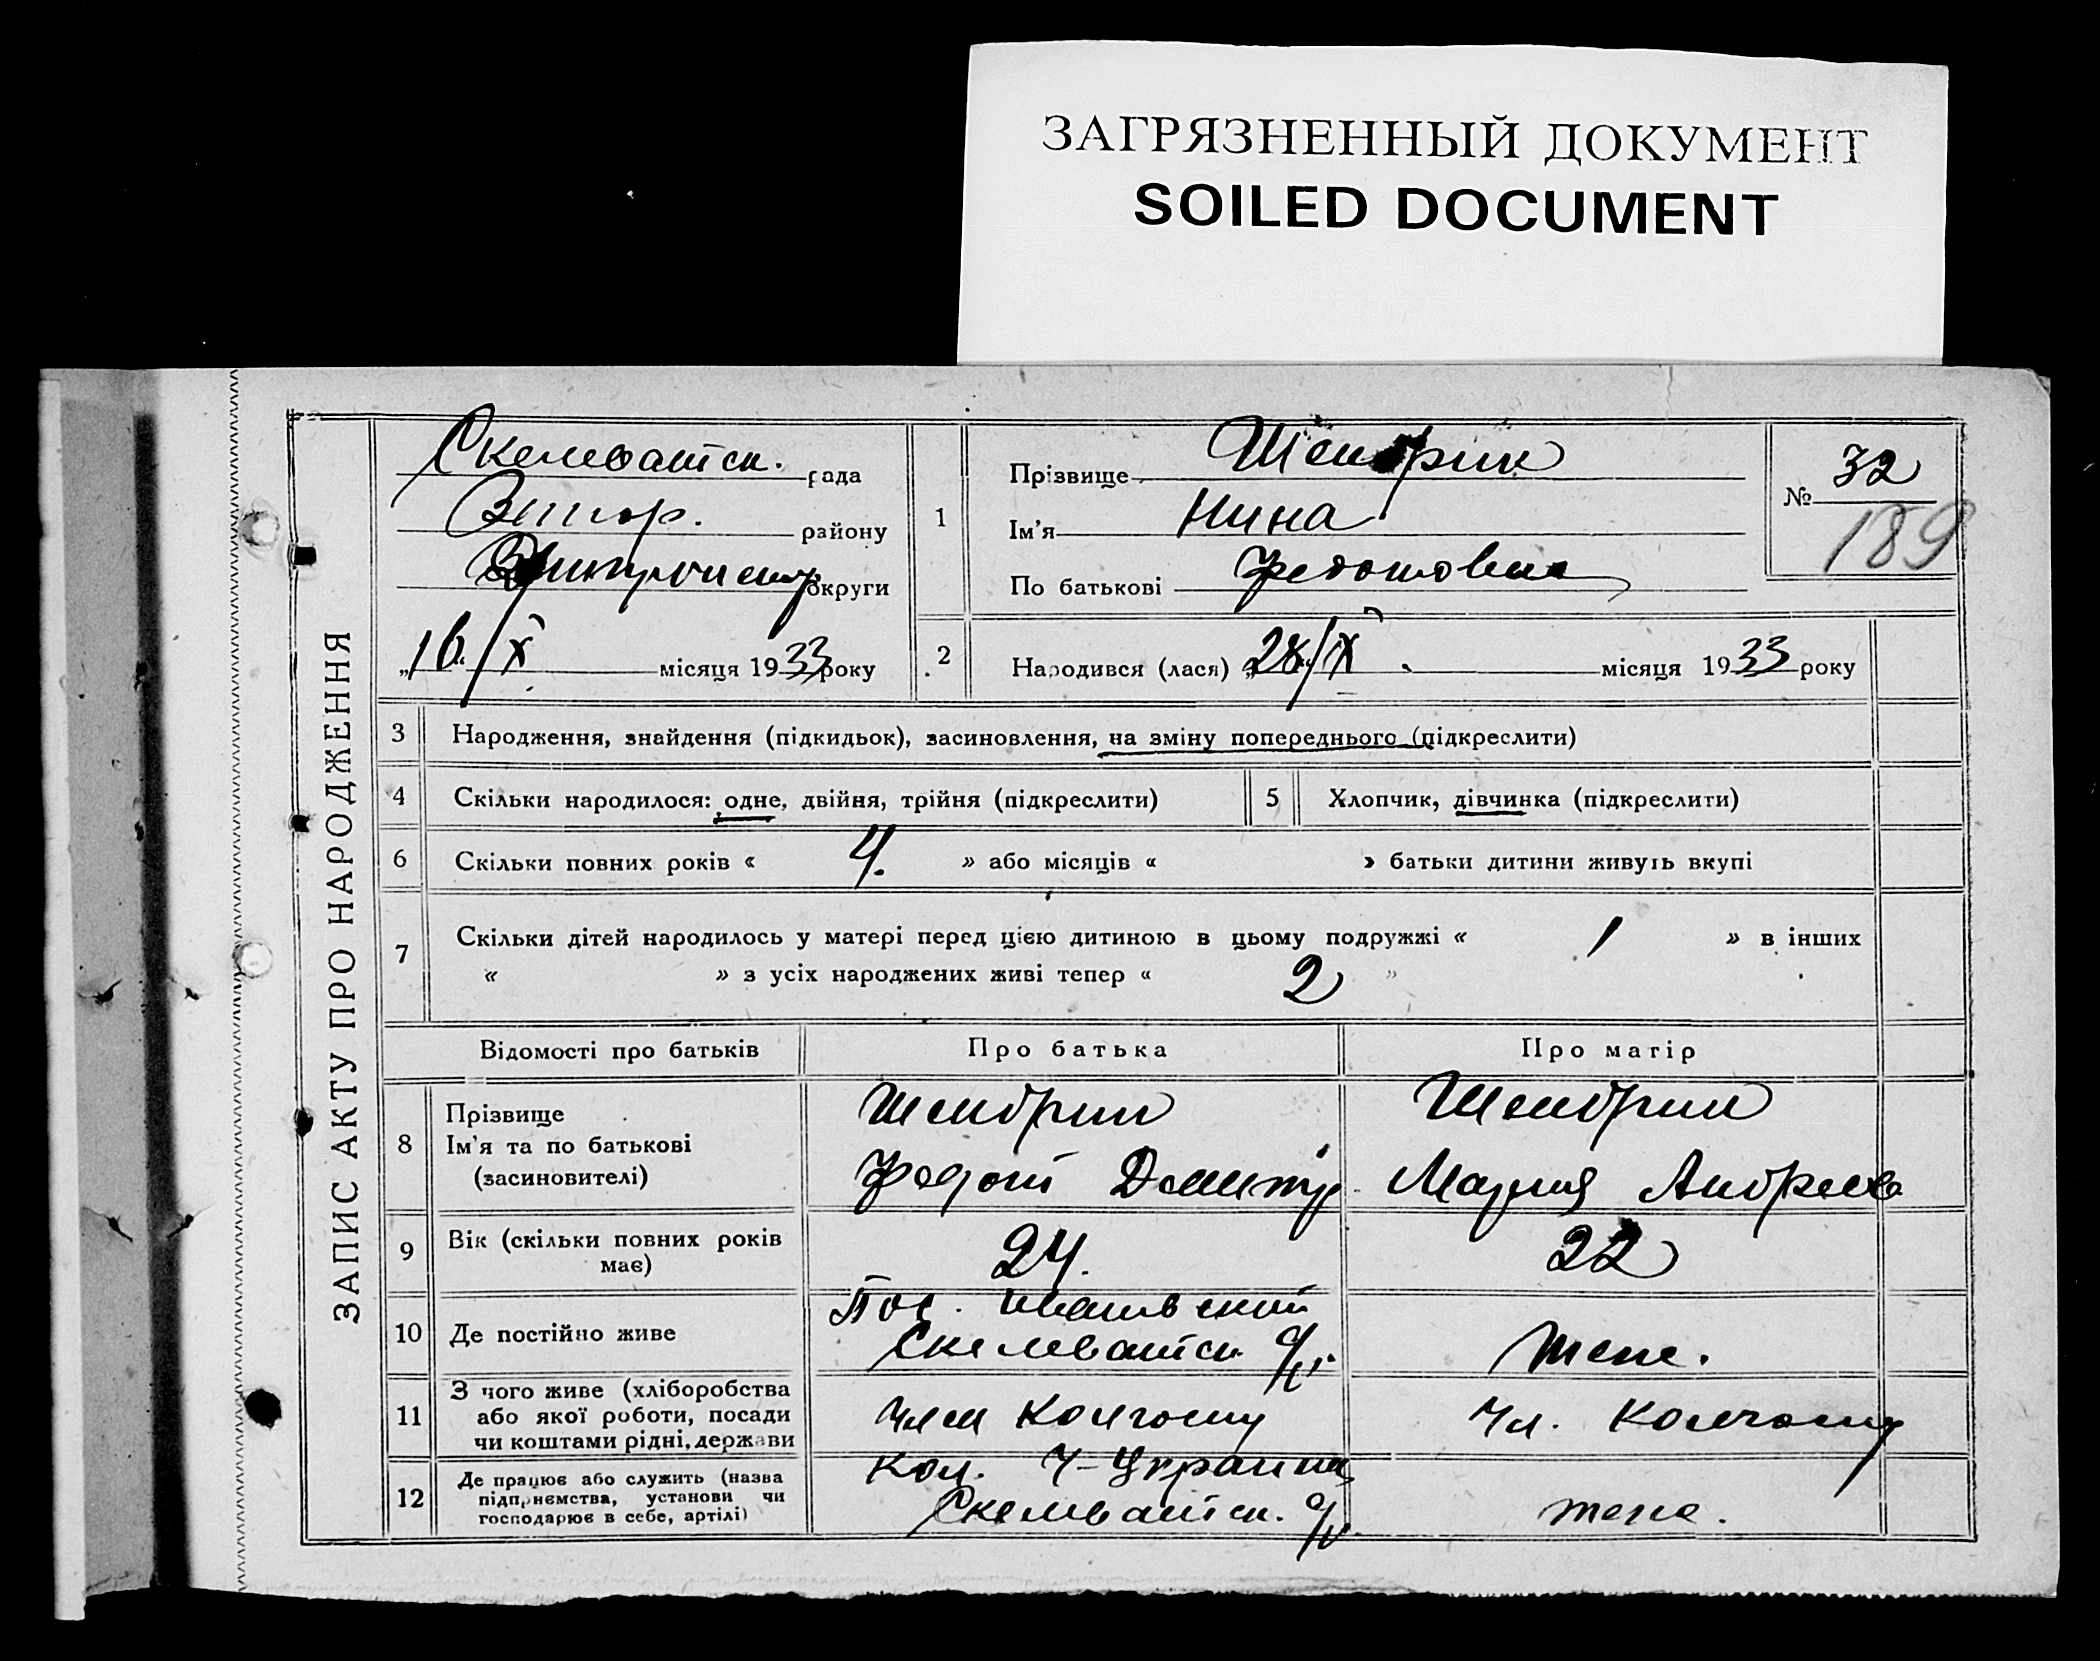 ЗАГРЯЗНЕННЫЙ ДОКУМЕНТ
SOILED DOCUMENT
ЗАПИС АКТУ ПРО НАРОДЖЕННЯ
Скелеватск. рада
району
округи
„16“/X місяця 1933 року
1
Прізвище
Ім'я Нина
По батькові Федотовна
№ 32
189
2 Народився (лася) „28“/IX місяця 1933 року
3 Народження, знайдення (підкидьок), засиновлення, на зміну попереднього (підкреслити)
4 Скільки народилося: одне, двійня, трійня (підкреслити)
5 Хлопчик, дівчинка (підкреслити)
6 Скільки повних років « 4. » або місяців « » батьки дитини живуть вкупі
7 Скільки дітей народилось у матері перед цією дитиною в цьому подружжі « 1 » в інших
« » з усіх народжених живі тепер « 2 »
Відомості про батьків Про батька Про матір
8 Прізвище
Ім'я та по батькові
(засновителі)
Федот
Мария Андреев
9 Вік (скільки повних років
має)
24.
22
10 Де постійно живе
Пос.
Скелеватск. с/р.
тоже.
11 З чого живе (хліборобства
або якої роботи, посади
чи коштами рідні, держави
член колгоспу
чл. колгоспу
12 Де працює або служить (назва
підприємства, установи чи
господарює в себе, артілі)
кол. Ч-Украина
Скелеватск. с/р.
тоже.